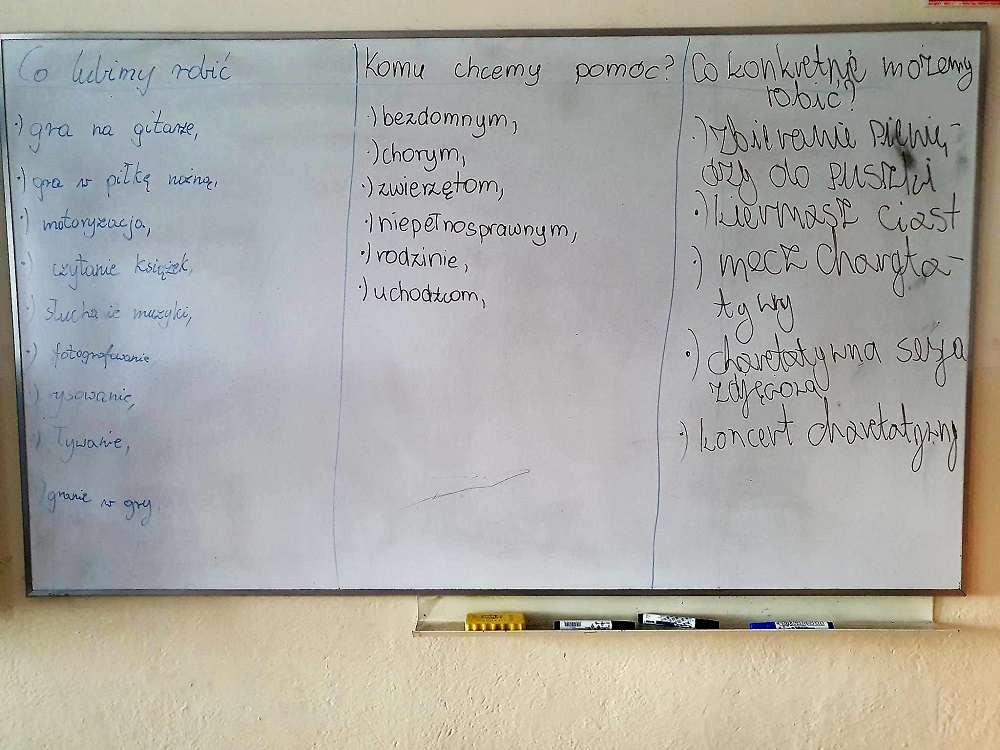 Co lubimy robić
·) gra na gitarze,
·) gra w piłkę nożną,
·) motoryzacja,
·) czytanie książek,
·) słuchanie muzyki,
·) fotografowanie
·) rysowanie,
·) Pływanie,
·) granie w gry
Komu chcemy pomóc?
·) bezdomnym,
·) chorym,
·) zwierzętom,
·) niepełnosprawnym,
·) rodzinie,
·) uchodźcom,
Co konkretnie możemy
robić?
·) zbieranie pienię-
dzy do puszki
·) kiermasz ciast
·) mecz charyta-
tywny
·) charetatywna sesja
zdjęciowa
·) koncert charetatywny